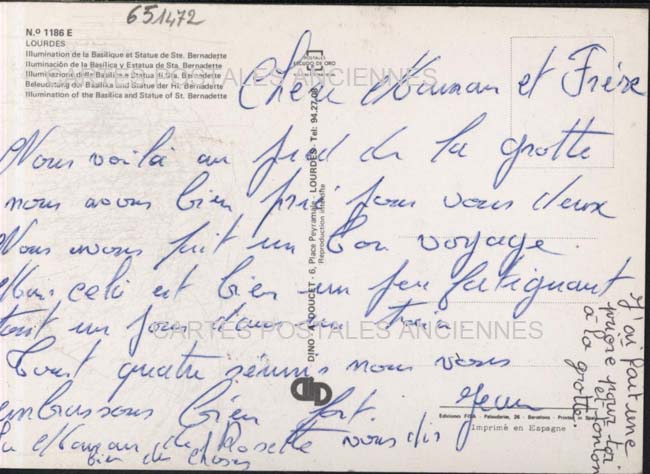 651472
N.º 1186 E
LOURDES
Illumination de la Basilique et Statue de Ste. Bernadette
Iluminación de la Basílica y Estatua de Sta. Bernadette
Illuminazione della Basilica e Statua di Sta. Bernadette
Beleuchtung der Basilika und Statue der Hl. Bernadette
Illumination of the Basilica and Statue of St. Bernadette
CARTES POSTALES ANCIENNES
POSTALES
ESCUDO DE ORO
Chère Maman et Frère
Nous voilà au pied de la grotte
nous avons bien prié pour vous deux
Nous avons fait un bon voyage.
Mais cela est bien un peu fatiguant
tout un jour dans un train
Tout quatre réunis nous vous
embrassons bien fort. Jean
La Maman de Rosette vous dis
bien des choses
J'ai fait une
prière pour toi
et tonton
à la grotte.
DINO - A. DOUCET - 6, Place Peyramale - LOURDES - Tel: 94.27.08
Reproduction interdite
CARTES POSTALES ANCIENNES
Ediciones FISA - Palaudarias, 26 - Barcelona - Printed in Spain
Imprimé en Espagne